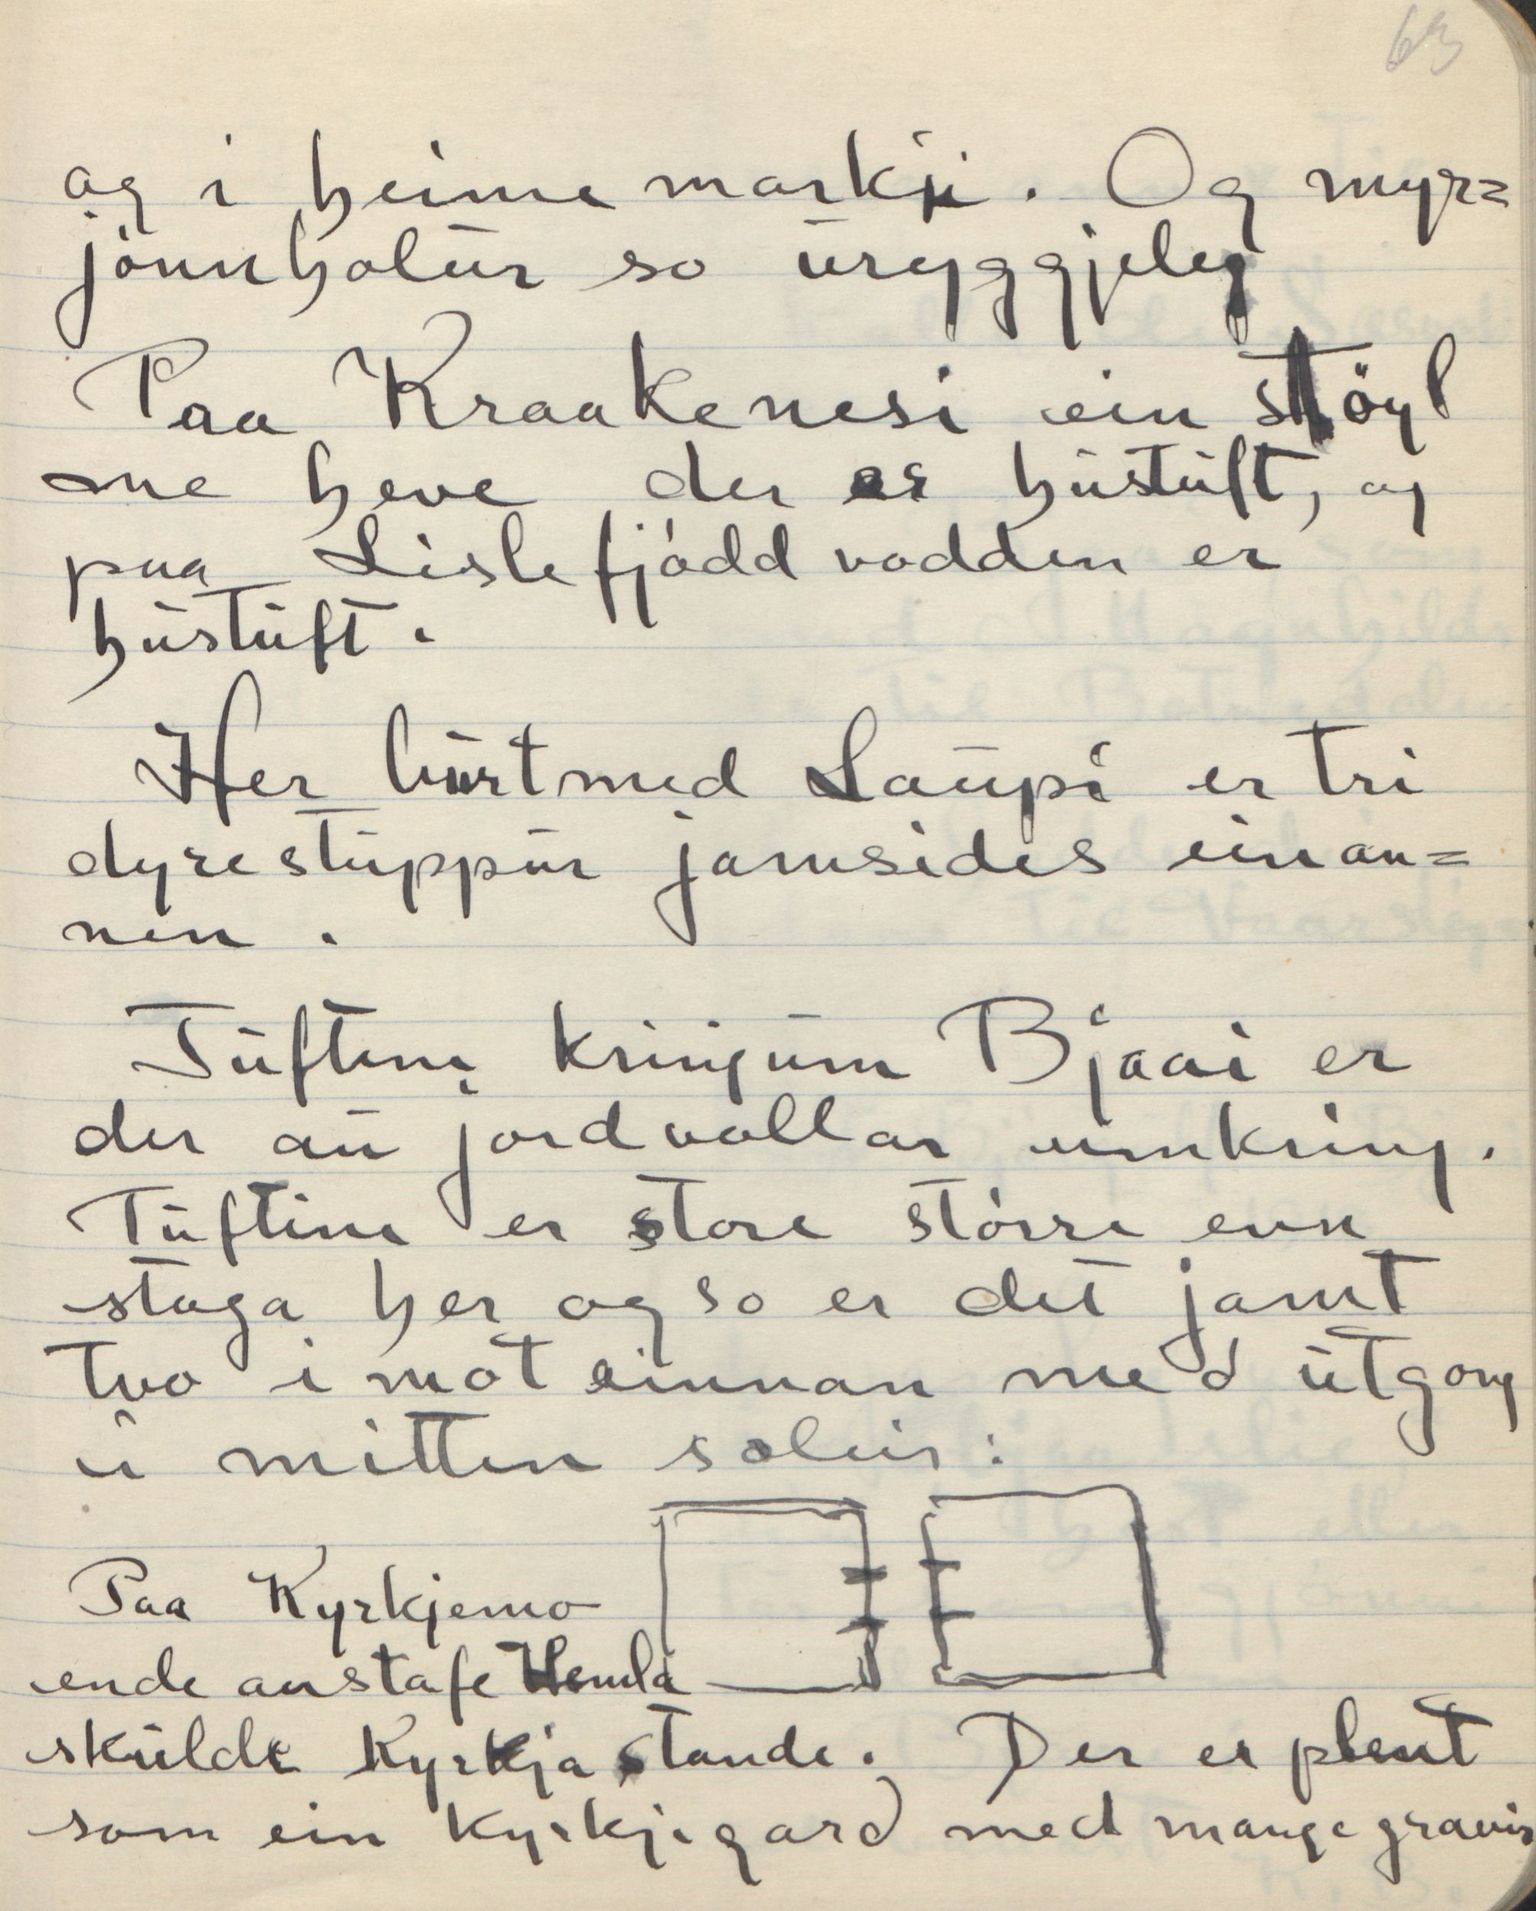 63
og i heimemarkji. Og myr=
jønnholur so uryggjeleg
Paa Kraakenesi ein støyl
me heve der er hustuft, og
paa Lislefjødd vodden er
hustuft.
Her burtmed Laupi er tri
dyrestuppur jamsides einan=
nen.
Tuftene kringum Bjaai er
der au jordvollar umkring.
Tuftine er store større enn
stoga her og so er det jamt
tvo imot einnan med utgong
i mitten soleis:
Paa Kyrkjemo
ende austafe Hemla
skulde Kyrkja stande. Der er plent
som ein kyrkjegard med mange gravir